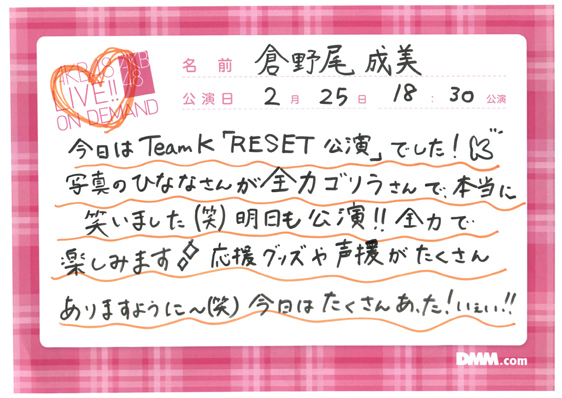 AKB48 AKB48
LIVE!!
ON DEMAND
名前 倉野尾 成美
公演日 2月 25日 18:30 公演
今日は Team K 「RESET 公演」でした!
写真のひななさんが全力ゴリラさんで、本当に
笑いました(笑) 明日も公演!! 全力で
楽しみます 応援グッズや声援がたくさん
ありますように〜(笑) 今日はたくさんあった!いぇい!!
DMM.com